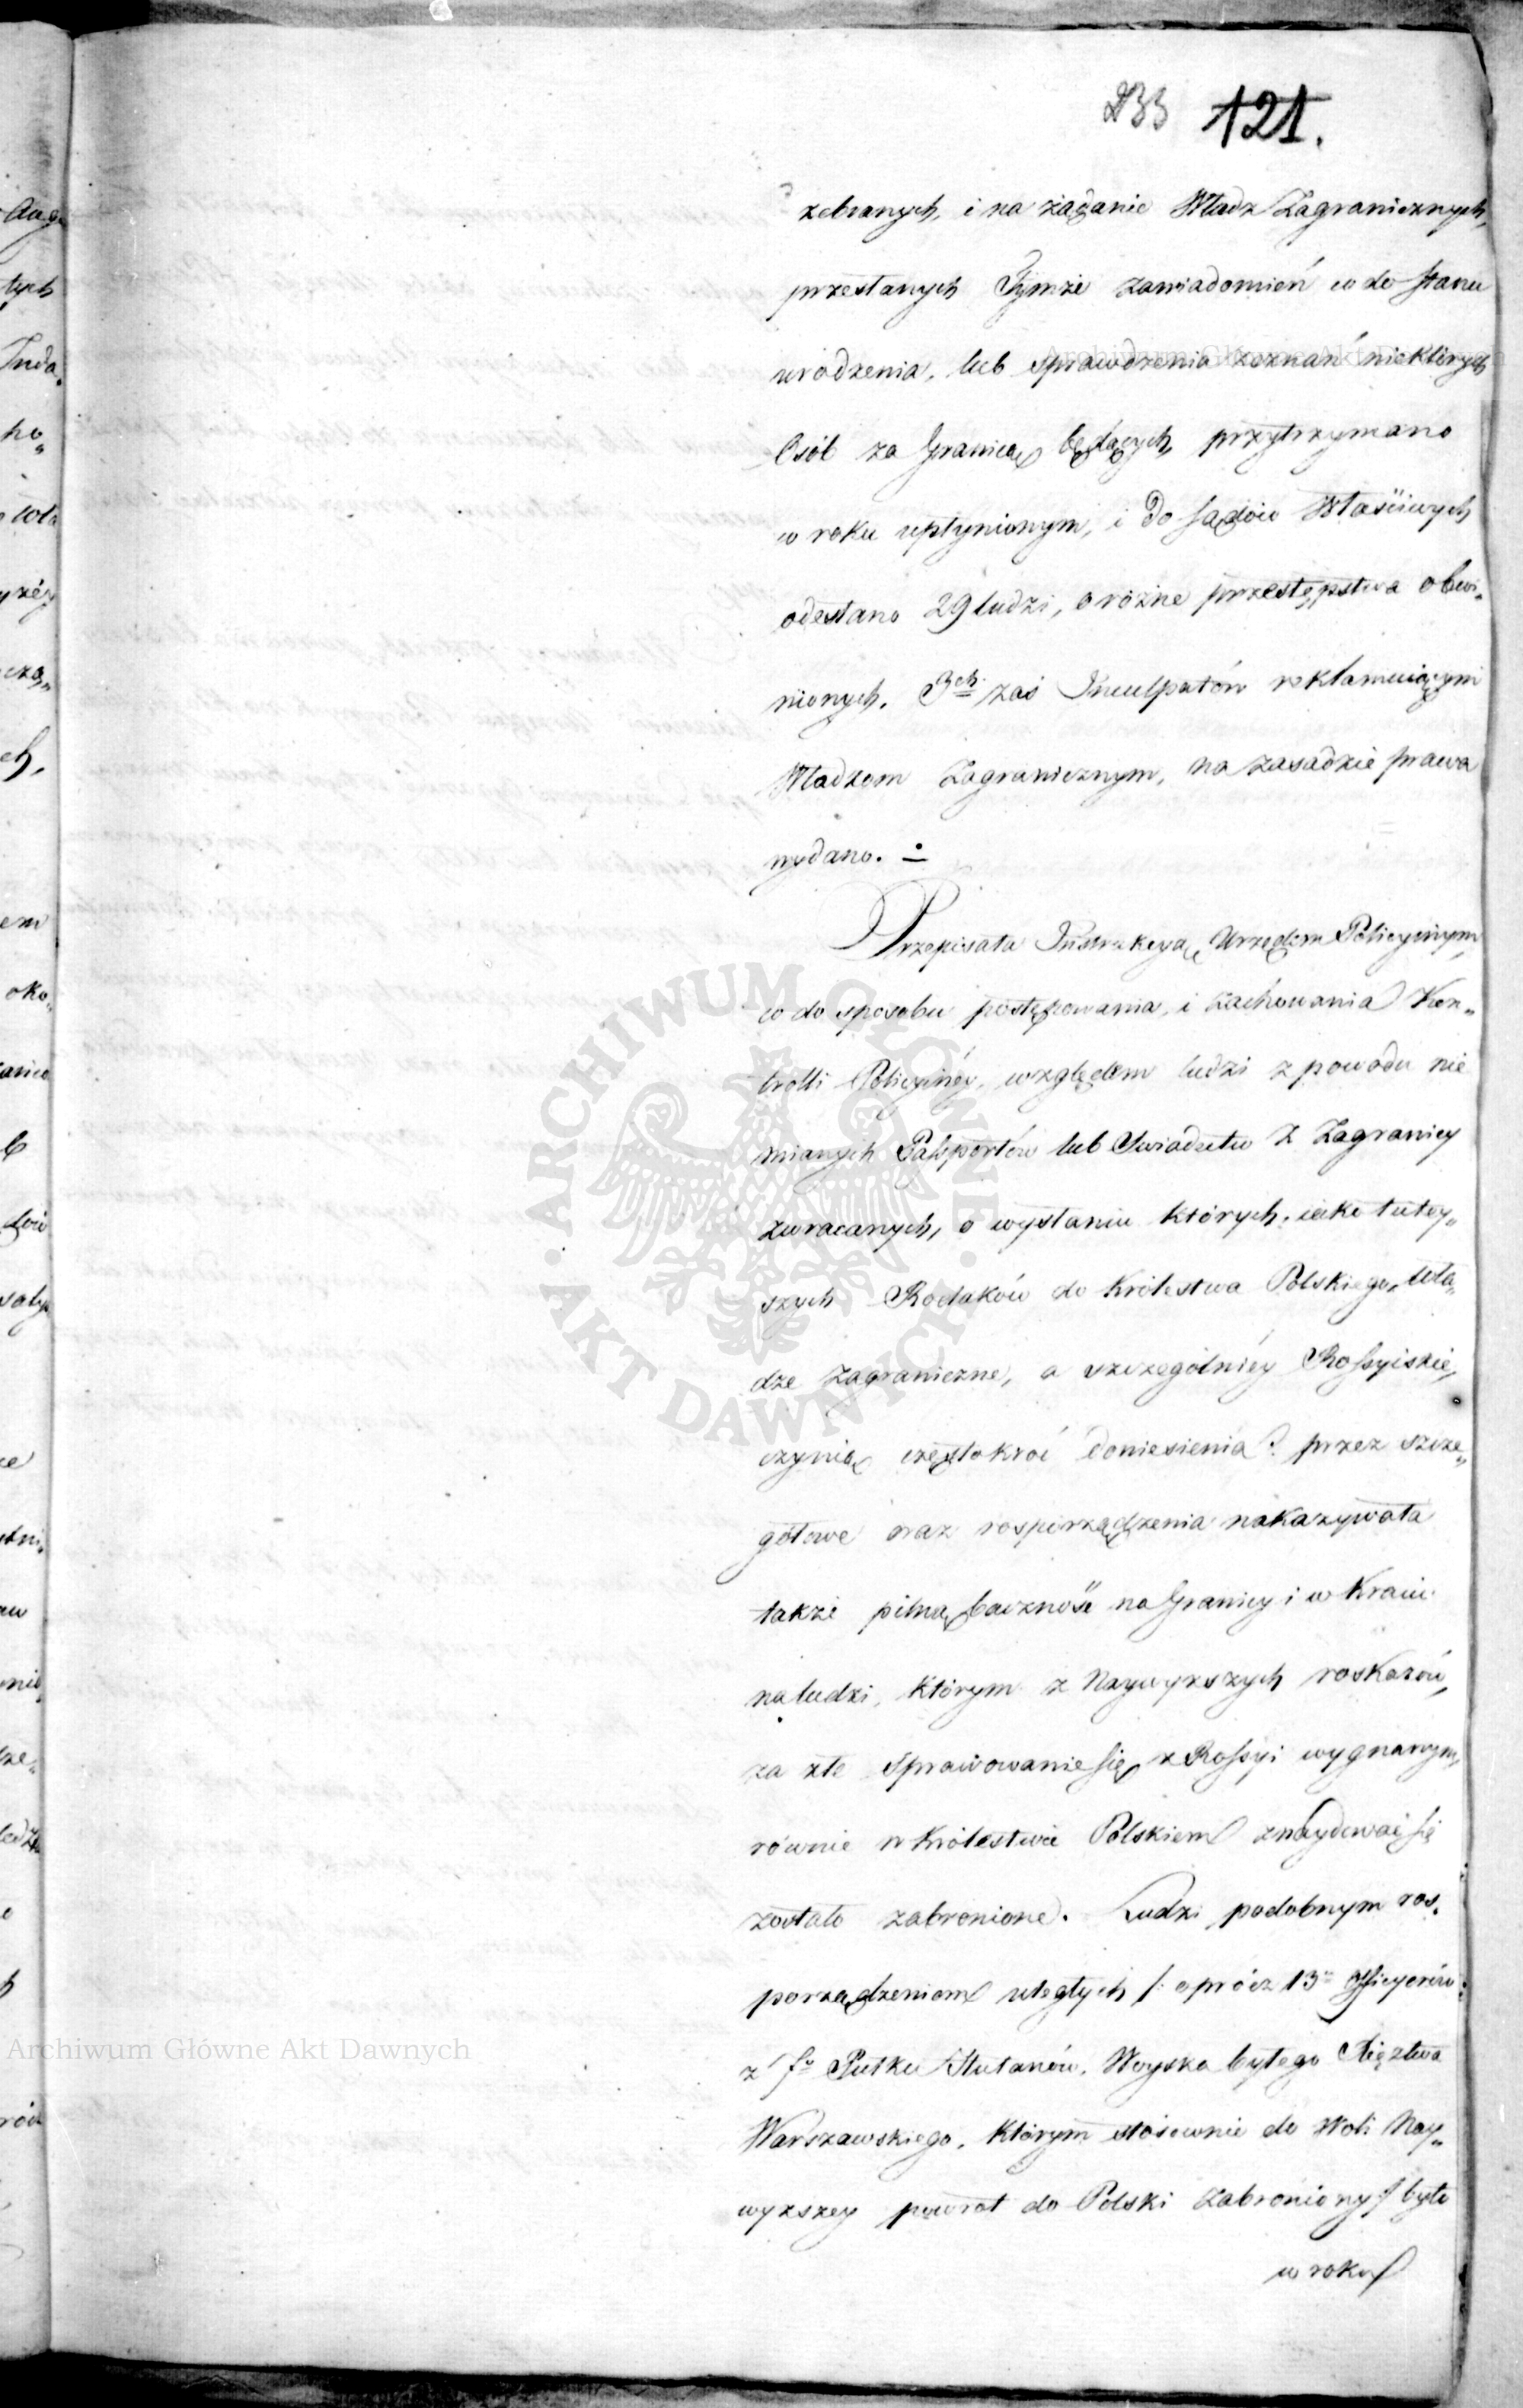 233 121.
zebranych, i na żądanie Władz Zagranicznych,
przesłanych Tymże zawiadomień co do stanu
urodzenia, lub sprawdzenia zeznań niektórych
Osób za Granicą będących, przytrzymano
w roku upłynionym, i do sądów Właściwych
odesłano 29 ludzi, o różne przestępstwa obwi„
nionych. 3ch zaś Inculpatów reklamuiącym
Władzom Zagranicznym, na zasadzie prawa
wydano. ÷
Przepisała Instrukcyą Urzędom Policyinym,
co do sposobu postępowania, i zachowania Kon„
trolli Policyinéy, względem ludzi z powodu nie
mianych Passportów lub Swiadectw z Zagranicy
zwracanych, o wysłaniu których, iako tutey„
szych Rodaków do Królestwa Polskiego, Wła„
dze Zagraniczne, a szczególniéy Rossyiskie,
czynią częstokroć doniesienia? przez szcze„
gółowe oraz rosporządzenia nakazywała
także pilną baczność na Granicy i w Kraiu
na ludzi, którym z Naywyższych roskazów,
za złe sprawowanie się z Rossyi wygnanym,
równie w Królestwie Polskiem znaydować się
zostało zabronione. Ludzi podobnym ros„
porządzeniom uległych /: oprócz 13 Officyerów
z Pułku Hułanów, Woyska byłego Xięztwa
Warszawskiego, którym stósownie do Woli Nay„
wyższey powrot do Polski zabroniony / było
w roku
Archiwum Główne Akt Dawnych
Archiwum Główne Akt Dawnych
ARCHIWUM GŁÓWNE · AKT DAWNYCH ·